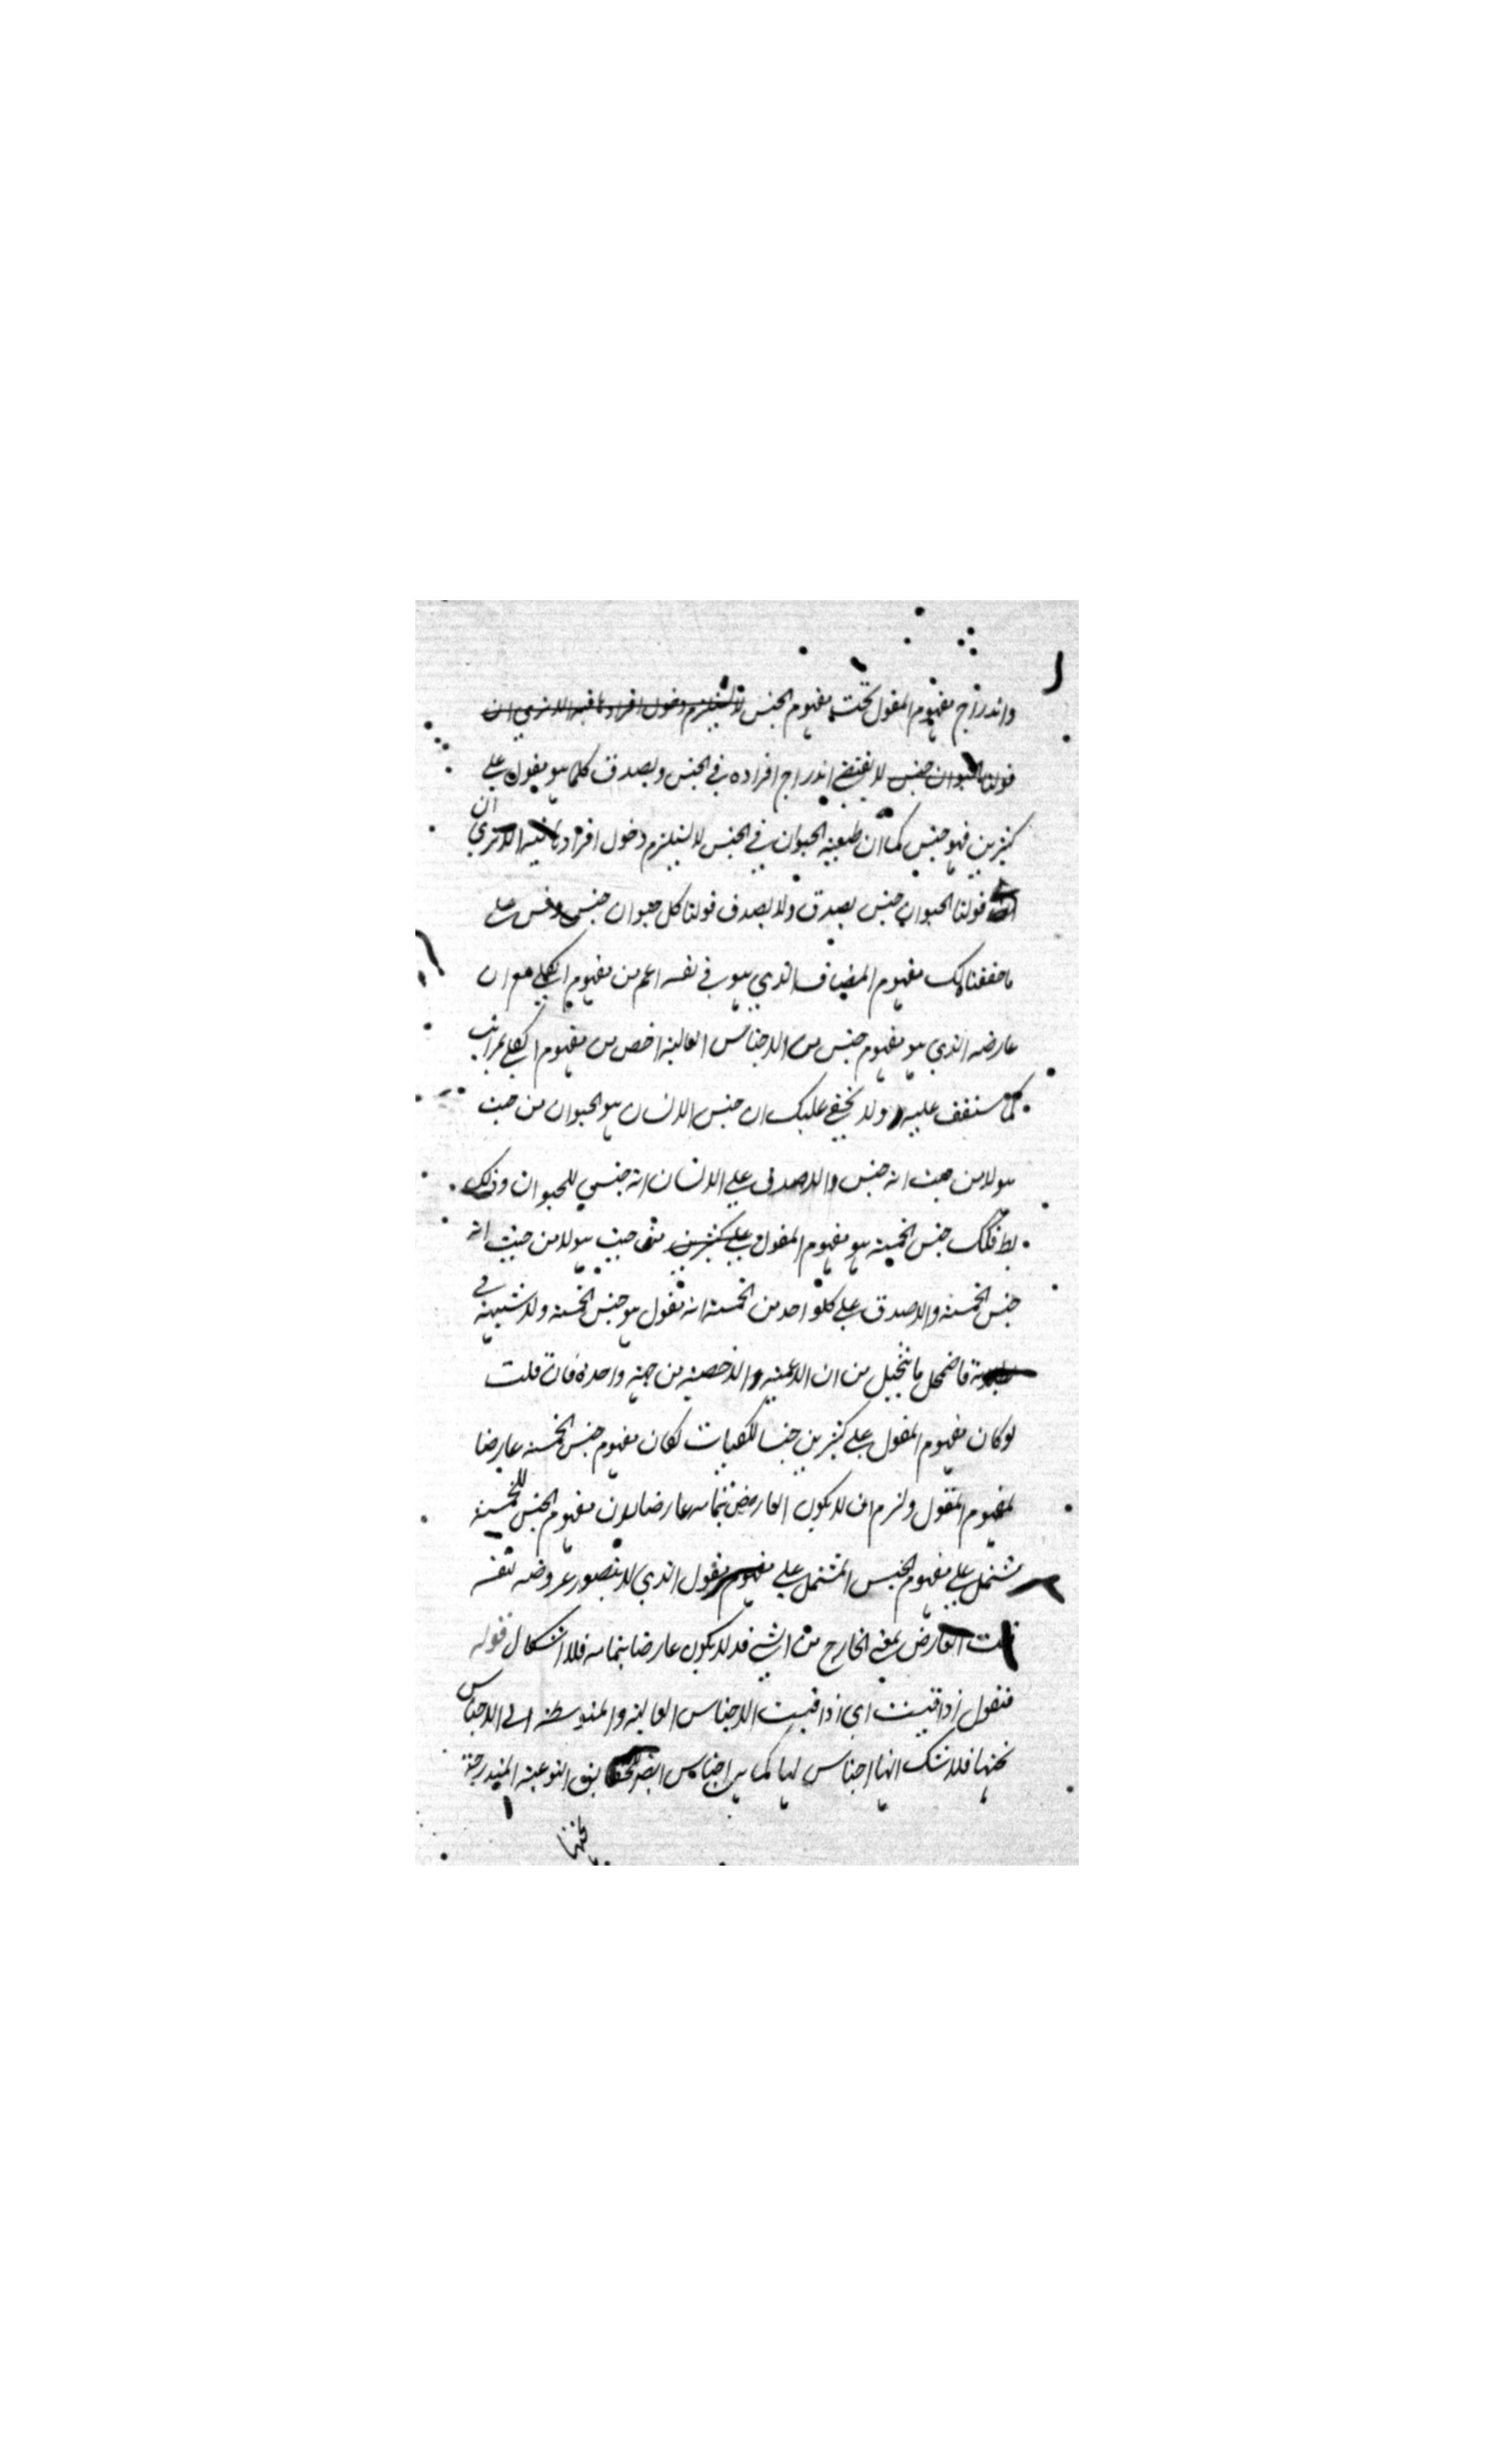 واندراج مفهوم المقول تحت مفهوم الجنس لا يستلزم دخول افرادها فيه الا تري ان
قولنا الحيوان جنس لا يقتضي اندراج افراده في الجنس ويصدق كلما هو مقول علي
كثيرين فهو جنس كما ان طبيعة الحيوان في الجنس لا يستلزم دخول افرادها فيه الا تري ان
قولنا الحيوان جنس يصدق ولا يصدق قولنا كل حيوان جنس وقس علي
ما حققنا لك مفهوم المضاف الذي هو في نفسه اعم من مفهوم الكلي مع ان
عارضه الذي هو مفهوم جنس من الاجناس العالية اخص من مفهوم الكلي بمراتب
كما ستقف عليه ولا يخفي عليك ان جنس الانسان هو الحيوان من حيث
هو لا من حيث انه جنس والا لصدق علي الانسان انه جنس للحيوان وذلك
بط فكك جنس الخمسة هو مفهوم المقول علي كثيرين من حيث هو لا من حيث انه
جنس الخمسة والا صدق علي كلواحد من الخمسة انه مقول هو جنس الخمسة ولا شبهة في
فاضمحل ما يتخيل من ان الاعمية والاخصية من جهة واحدة فان قلت
لو كان مفهوم المقول علي كثيرين جنسا للكليات لكان مفهوم جنس الخمسة عارضا
لمفهوم المقول ولزم ان لا يكون العارض بتمامه عارضا لان مفهوم الجنس للخمسة
مشتمل علي مفهوم الجنس المشتمل علي مفهوم مقول الذي لا يتصور عروضه لنفسه
قلت العارض بمعني الخارج من الشي قد لا يكون عارضا بتمامه فلا اشكال قوله
فنقول اذا قيست اي اذا قيست الاجناس العالية والمتوسطة الي الاجناس
تحتها فلا شك انها اجناس لها كما هي اجناس ايضا للحقايق النوعية المندرجة
تحتها